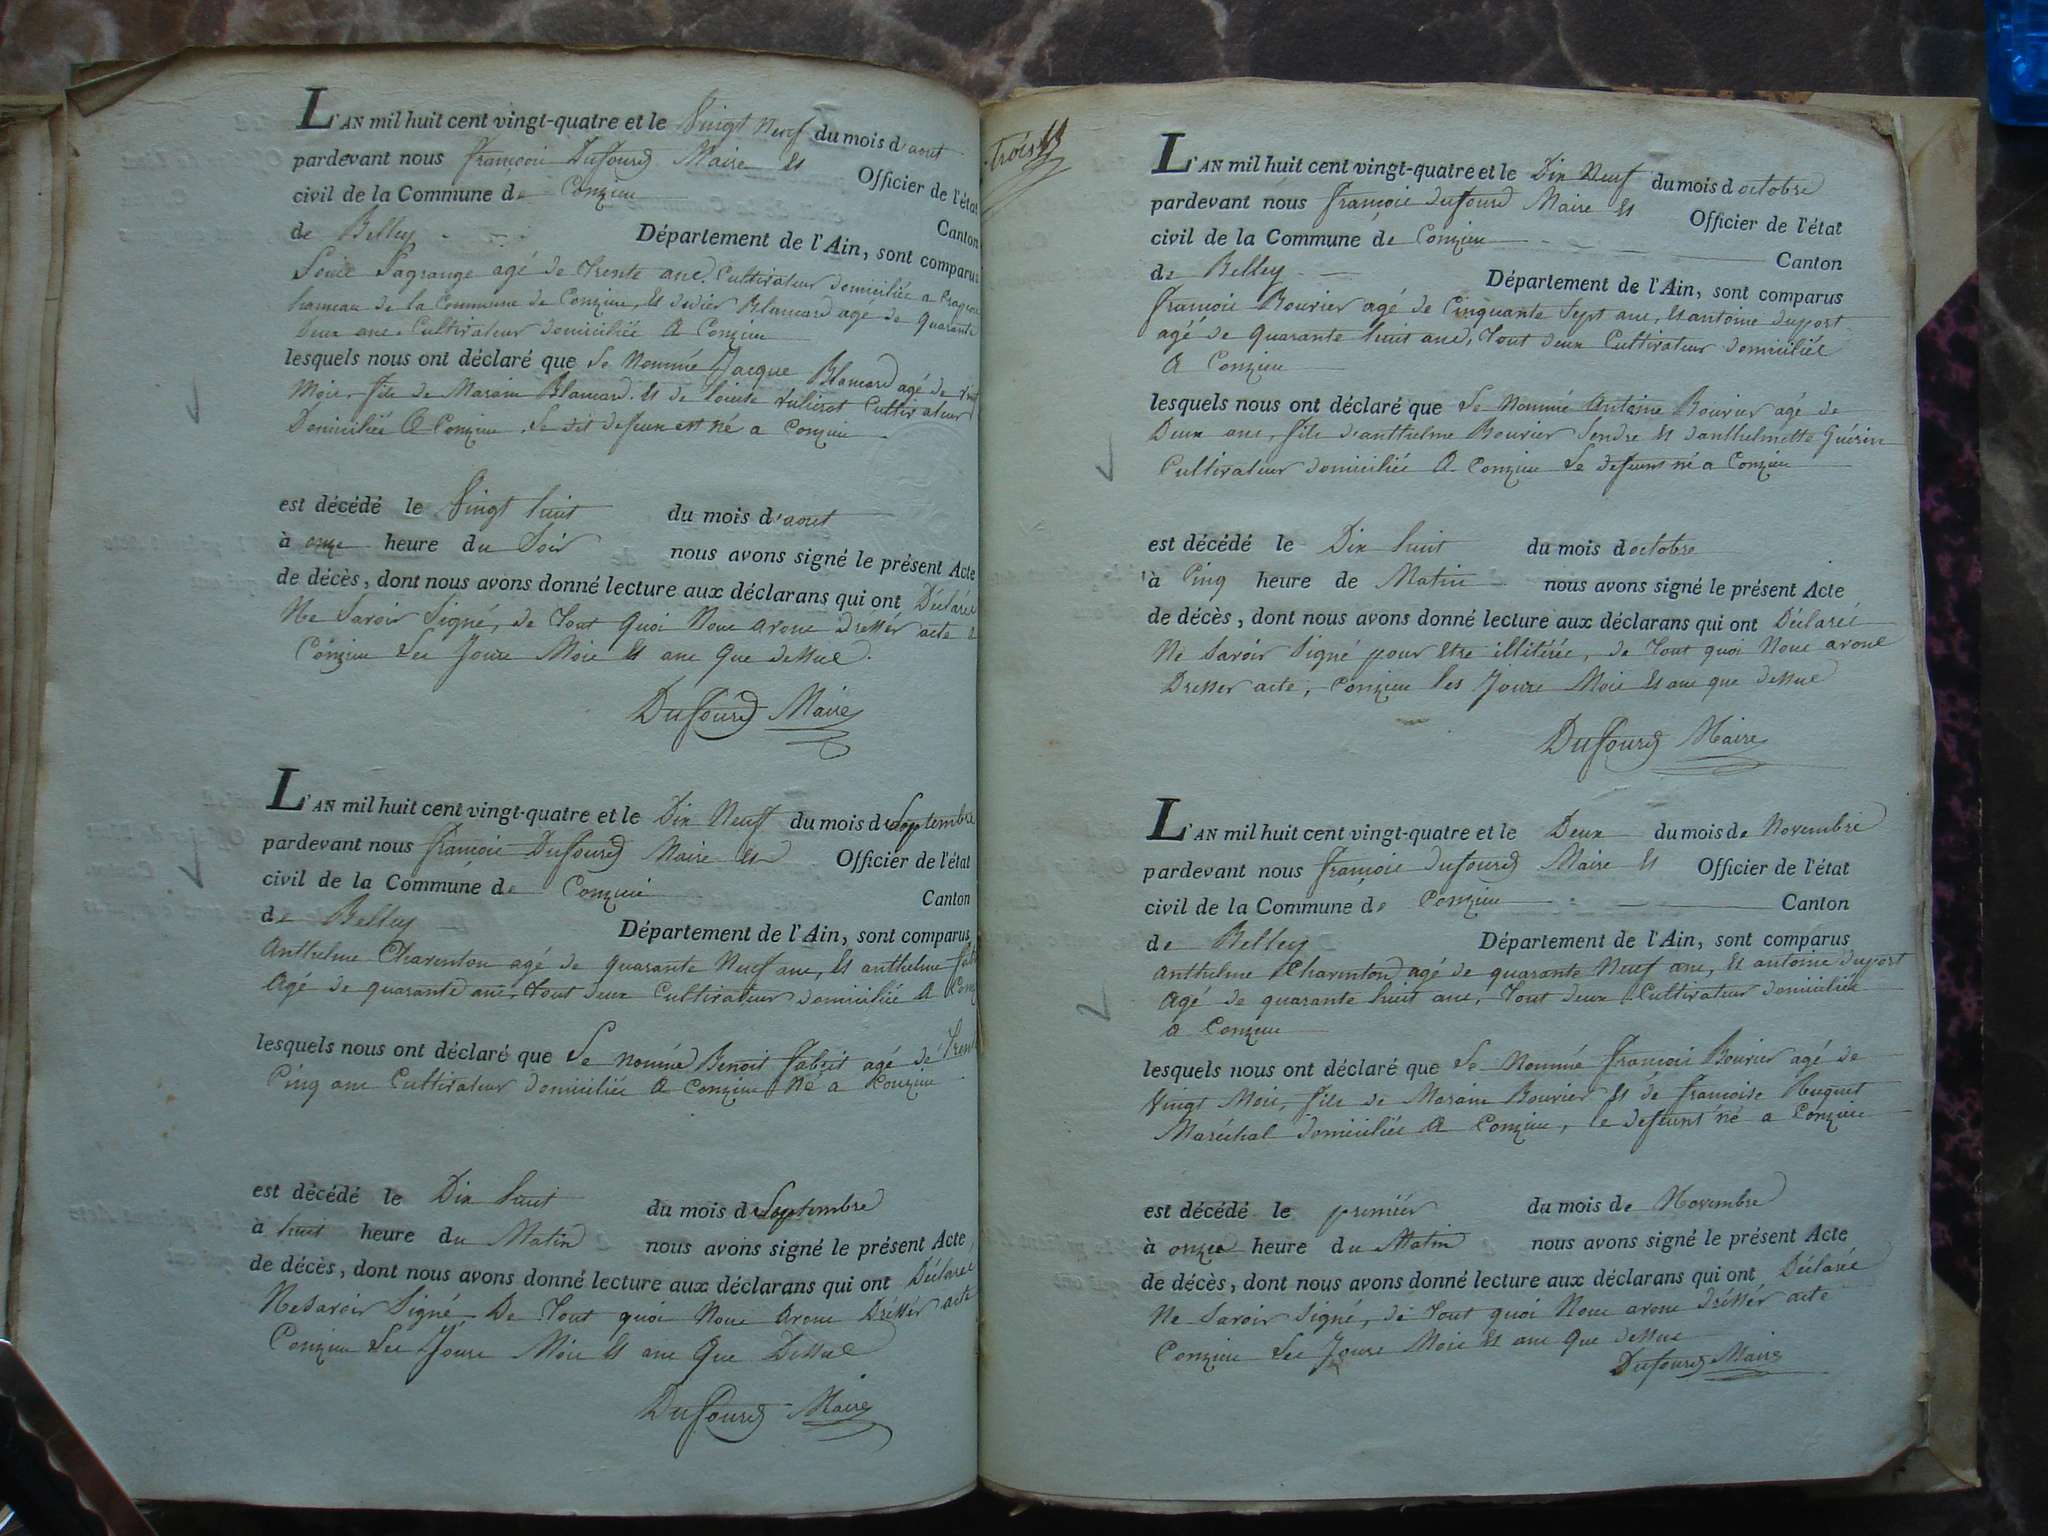 L'AN mil huit cent vingt-quatre et le Vingt Neuf du mois d'aout
pardevant nous françois Dufourd Maire Et Officier de l'état
civil de la Commune de Conzieu Canton
de Belley Département de l'Ain, sont comparus
Lagrange agé de trente ans. Cultivateur domicilié a
hameau de la Commune de Conzieu, Et didier Blancard agé de quarante
Deux ans. Cultivateur domicilié A Conzieu
lesquels nous ont déclaré que Le Nommé Jacque Blancard agé de
Mois, fils de Marain Blancard. Et de Louise Cultivateur
Domicilié A Conzieu. Le dit defeun est né a Conzieu
est décédé le Vingt huit du mois d'aout
à onze heure du Soir nous avons signé le présent Acte
de décès, dont nous avons donné lecture aux déclarans qui ont Déclarée
Ne Savoir Signé, de Tout Quoi Nous avons dresser acte a
Conzieu Les Jours Mois Et ans que dessus.
Dufourd Maire
L'AN mil huit cent vingt-quatre et le Dix Neuf du mois de Septembre
pardevant nous françois Dufourd Maire Et Officier de l'état
civil de la Commune de Conzieu Canton
de Belley Département de l'Ain, sont comparus
Anthelme Charenton agé de quarante Neuf ans, Et anthelme
Agé de quarante ans, Tout deux Cultivateur domicilié A
lesquels nous ont déclaré que Le nommé Benoit fabrit agé de Trente
Cinq ans Cultivateur domicilié A Conzieu Né a Conzieu
est décédé le Dix huit du mois de Septembre
à huit heure du Matin nous avons signé le présent Acte
de décès, dont nous avons donné lecture aux déclarans qui ont Déclareé
Ne Savoir Signé De Tout quoi Nous avons Drésser acte
Conzieu Les Jours Mois Et ans Que Dessus
Dufourd Maire
Trois
L'AN mil huit cent vingt-quatre et le Dix Neuf du mois d octobre
pardevant nous françois dufourd Maire Et Officier de l'état
civil de la Commune de Conzieu Canton
de Belley Département de l'Ain, sont comparus
françois Bouvier agé de Cinquante Sept ans, Et antoine duport
agé de quarante huit ans, Tout deux Cultivateur domicilié
A Conzieu
lesquels nous ont déclaré que Le Nommé Antoine Bouvier agé de
Deux ans, fils d'anthelme Bouvier Et d'anthelmette Guérin
Cultivateur domicilié A Conzieu Le defeunt né a Conzieu
est décédé le Dix huit du mois d octobre
à Cinq heure de Matin nous avons signé le présent Acte
de décès, dont nous avons donné lecture aux déclarans qui ont Déclareé
Ne Savoir Signé pour Etre illitérée, de Tout quoi Nous avons
Dresser acte, Conzieu les Jours Mois Et ans que dessus
Dufourd Maire
L'AN mil huit cent vingt-quatre et le Deux du mois de Novembre
pardevant nous françois dufourd Maire Et Officier de l'état
civil de la Commune de Conzieu Canton
de Belley Département de l'Ain, sont comparus
Anthelme Charenton agé de quarante Neuf ans, Et antoine duport
Agé de quarante huit ans, Tout deux Cultivateur domicilié
a Conzieu
lesquels nous ont déclaré que Le Nommé françois Bouvier agé de
Vingt Mois, fils de Marain Bouvier Et de françoise Huguet
Maréchal domicilié A Conzieu, le defeunt né a Conzieu
est décédé le premiér du mois de Novembre
à onze heure du Matin nous avons signé le présent Acte
de décès, dont nous avons donné lecture aux déclarans qui ont Déclaré
Ne Savoir Signé, de Tout quoi Nous avons drésser acte
Conzieu Les Jours Mois Et ans Que dessus
Dufourd Maire